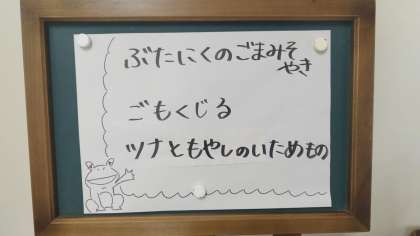 ぶたにくのごまみそ
やき
ごもくじる
ツナともやしのいためもの